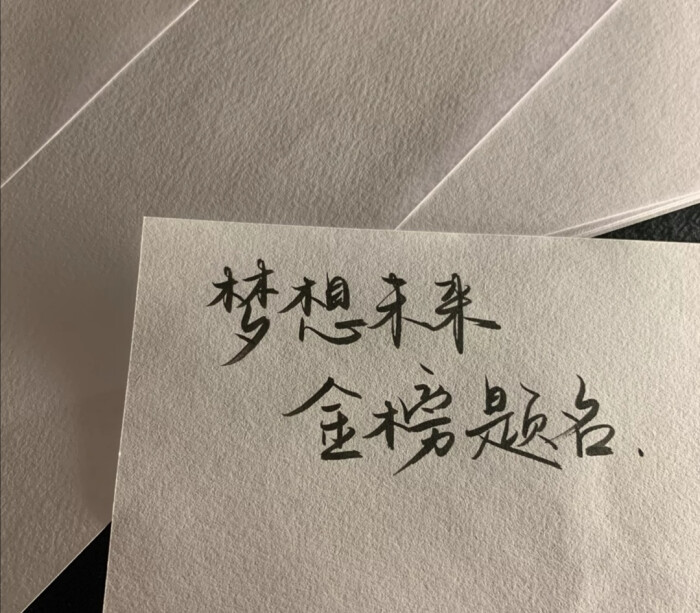 梦想未来
金榜题名.